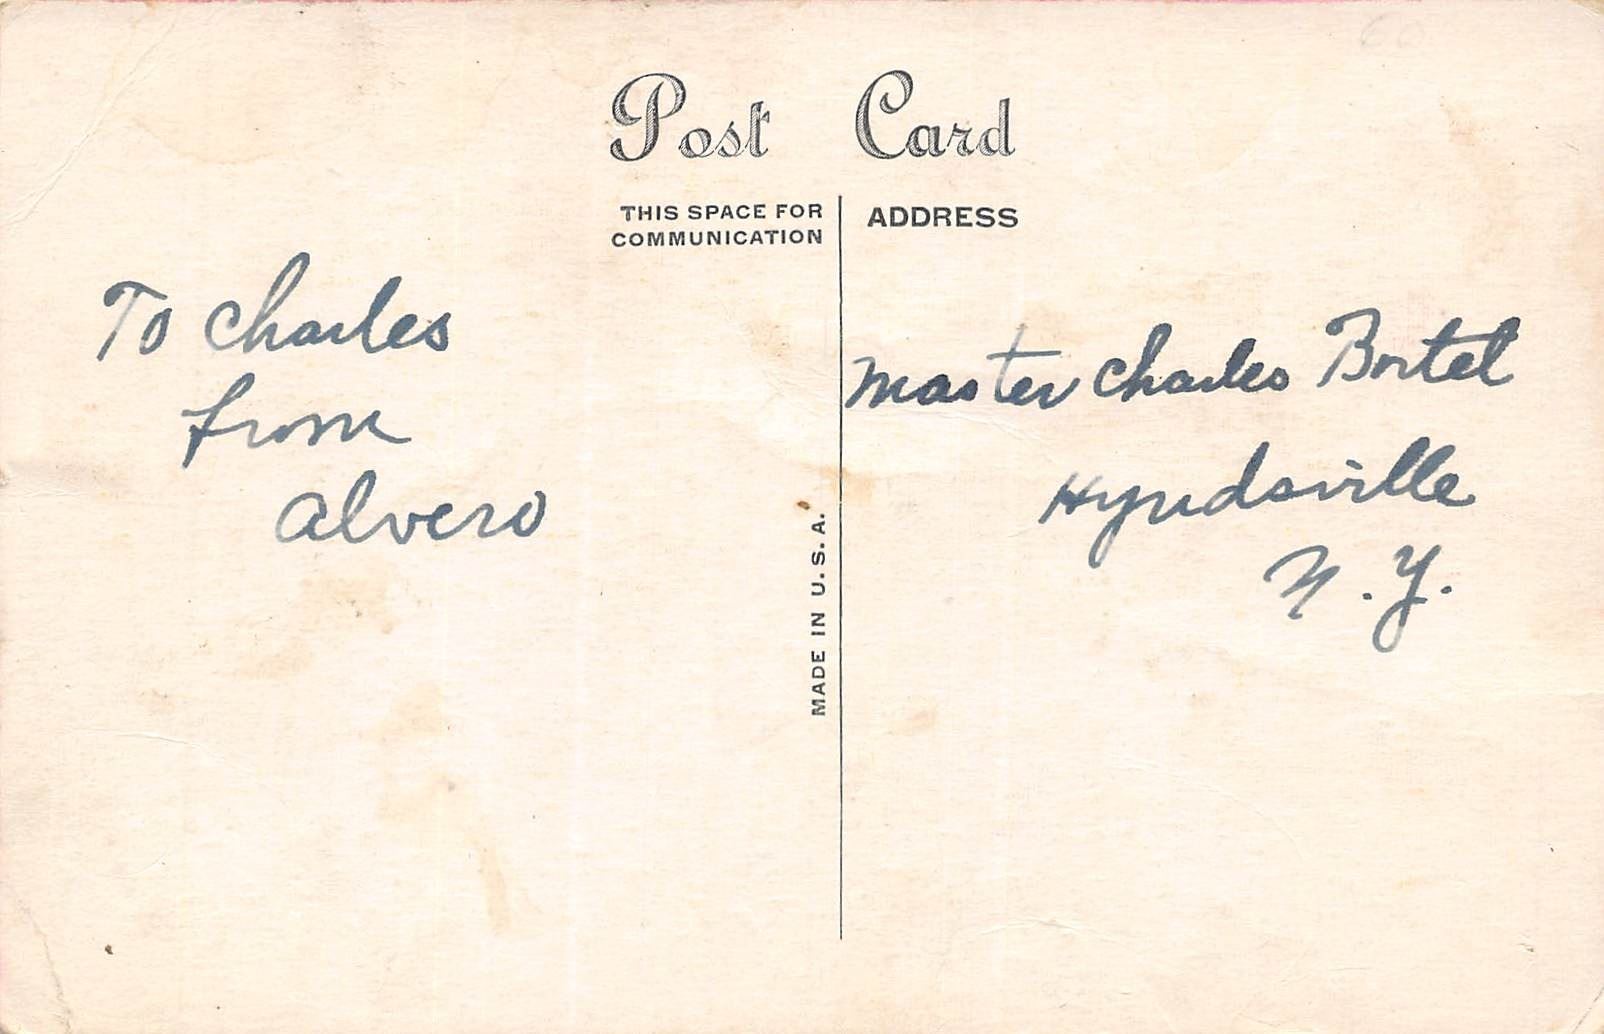 Post Card
THIS SPACE FOR
COMMUNICATION
ADDRESS
To Charles
from
Alvero
Master Charles Bortel
Hyndsville
N.Y.
MADE IN U.S.A.
60